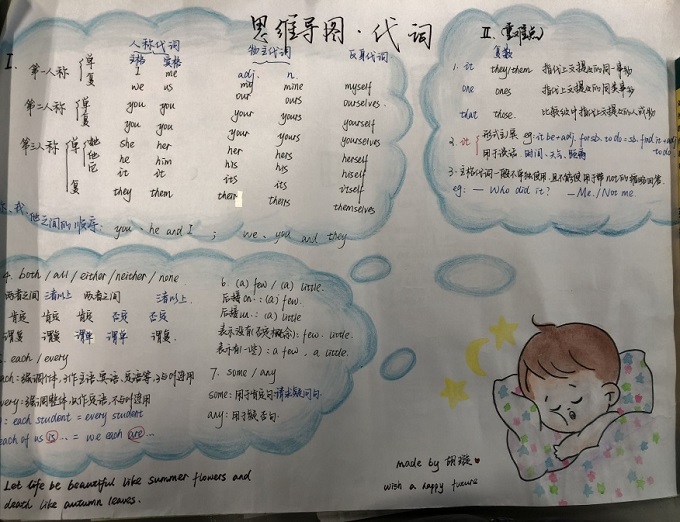 思维导图·代词
I.
人称代词 物主代词 反身代词
主格 宾格 adj. n.
第一人称 单 I me my mine myself
复 we us our ours ourselves
第二人称 单 you you your yours yourself
复 you you your yours yourselves
第三人称 单 她 she her her hers herself
他 he him his his himself
它 it it its its itself
复 they them their theirs themselves
你、我、他之间的顺序: you、he and I ; we、you and they
II.(重难点)
复数
1. it they/them 指代上文提过的同一事物
one ones 指代上文提过的同类事物
that those. 比较级中指代上文提过的人或物
2. it 形式主宾 eg: it be+adj. for sb. to do = sb. find it+adj to do
用于谈论 时间、天气、距离
3. 主格代词一般不单独使用,且不能使用于带not的省略回答.
eg: — Who did it? — Me./Not me.
4. both / all / either / neither / none
两者之间 三者以上 两者之间 三者以上.
肯定 肯定 肯定 否定 否定
谓复 谓复 谓单 谓单 谓复.
each / every
each: 强调个体,可作主语、宾语、
every: 强调整体,
: each student = every student
each of us is ... = we each are ...
6. (a) few / (a) little.
后接cn.: (a) few.
后接un.: (a) little.
表示没有(否定概念): few. little.
表示有(一些): a few 、a little.
7. some / any
some: 用于肯定句 请求疑问句.
any: 用于疑否句.
made by 胡璇
wish a happy future
Let life be beautiful like summer flowers and
death like autumn leaves.